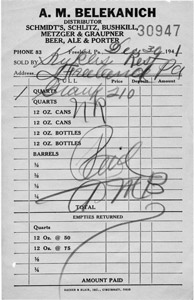 A. M. BELEKANICH
DISTRIBUTOR
SCHMIDT'S, SCHLITZ, BUSHKILL,
METZGER & GRAUPNER
BEER, ALE & PORTER
30947
PHONE 82 Freeland, Pa., Dec 30 1941
SOLD BY Rest
Address Freeland Pa
QUARTS
12 OZ. CANS NR
12 OZ. CANS
12 OZ. BOTTLES
12 OZ. BOTTLES
BARRELS
¼
½
¼
½
Paid
AMB
TOTAL
EMPTIES RETURNED
QUARTS
12 Oz @ 50
12 Oz @ 75
¼
½
¼
½
AMOUNT PAID